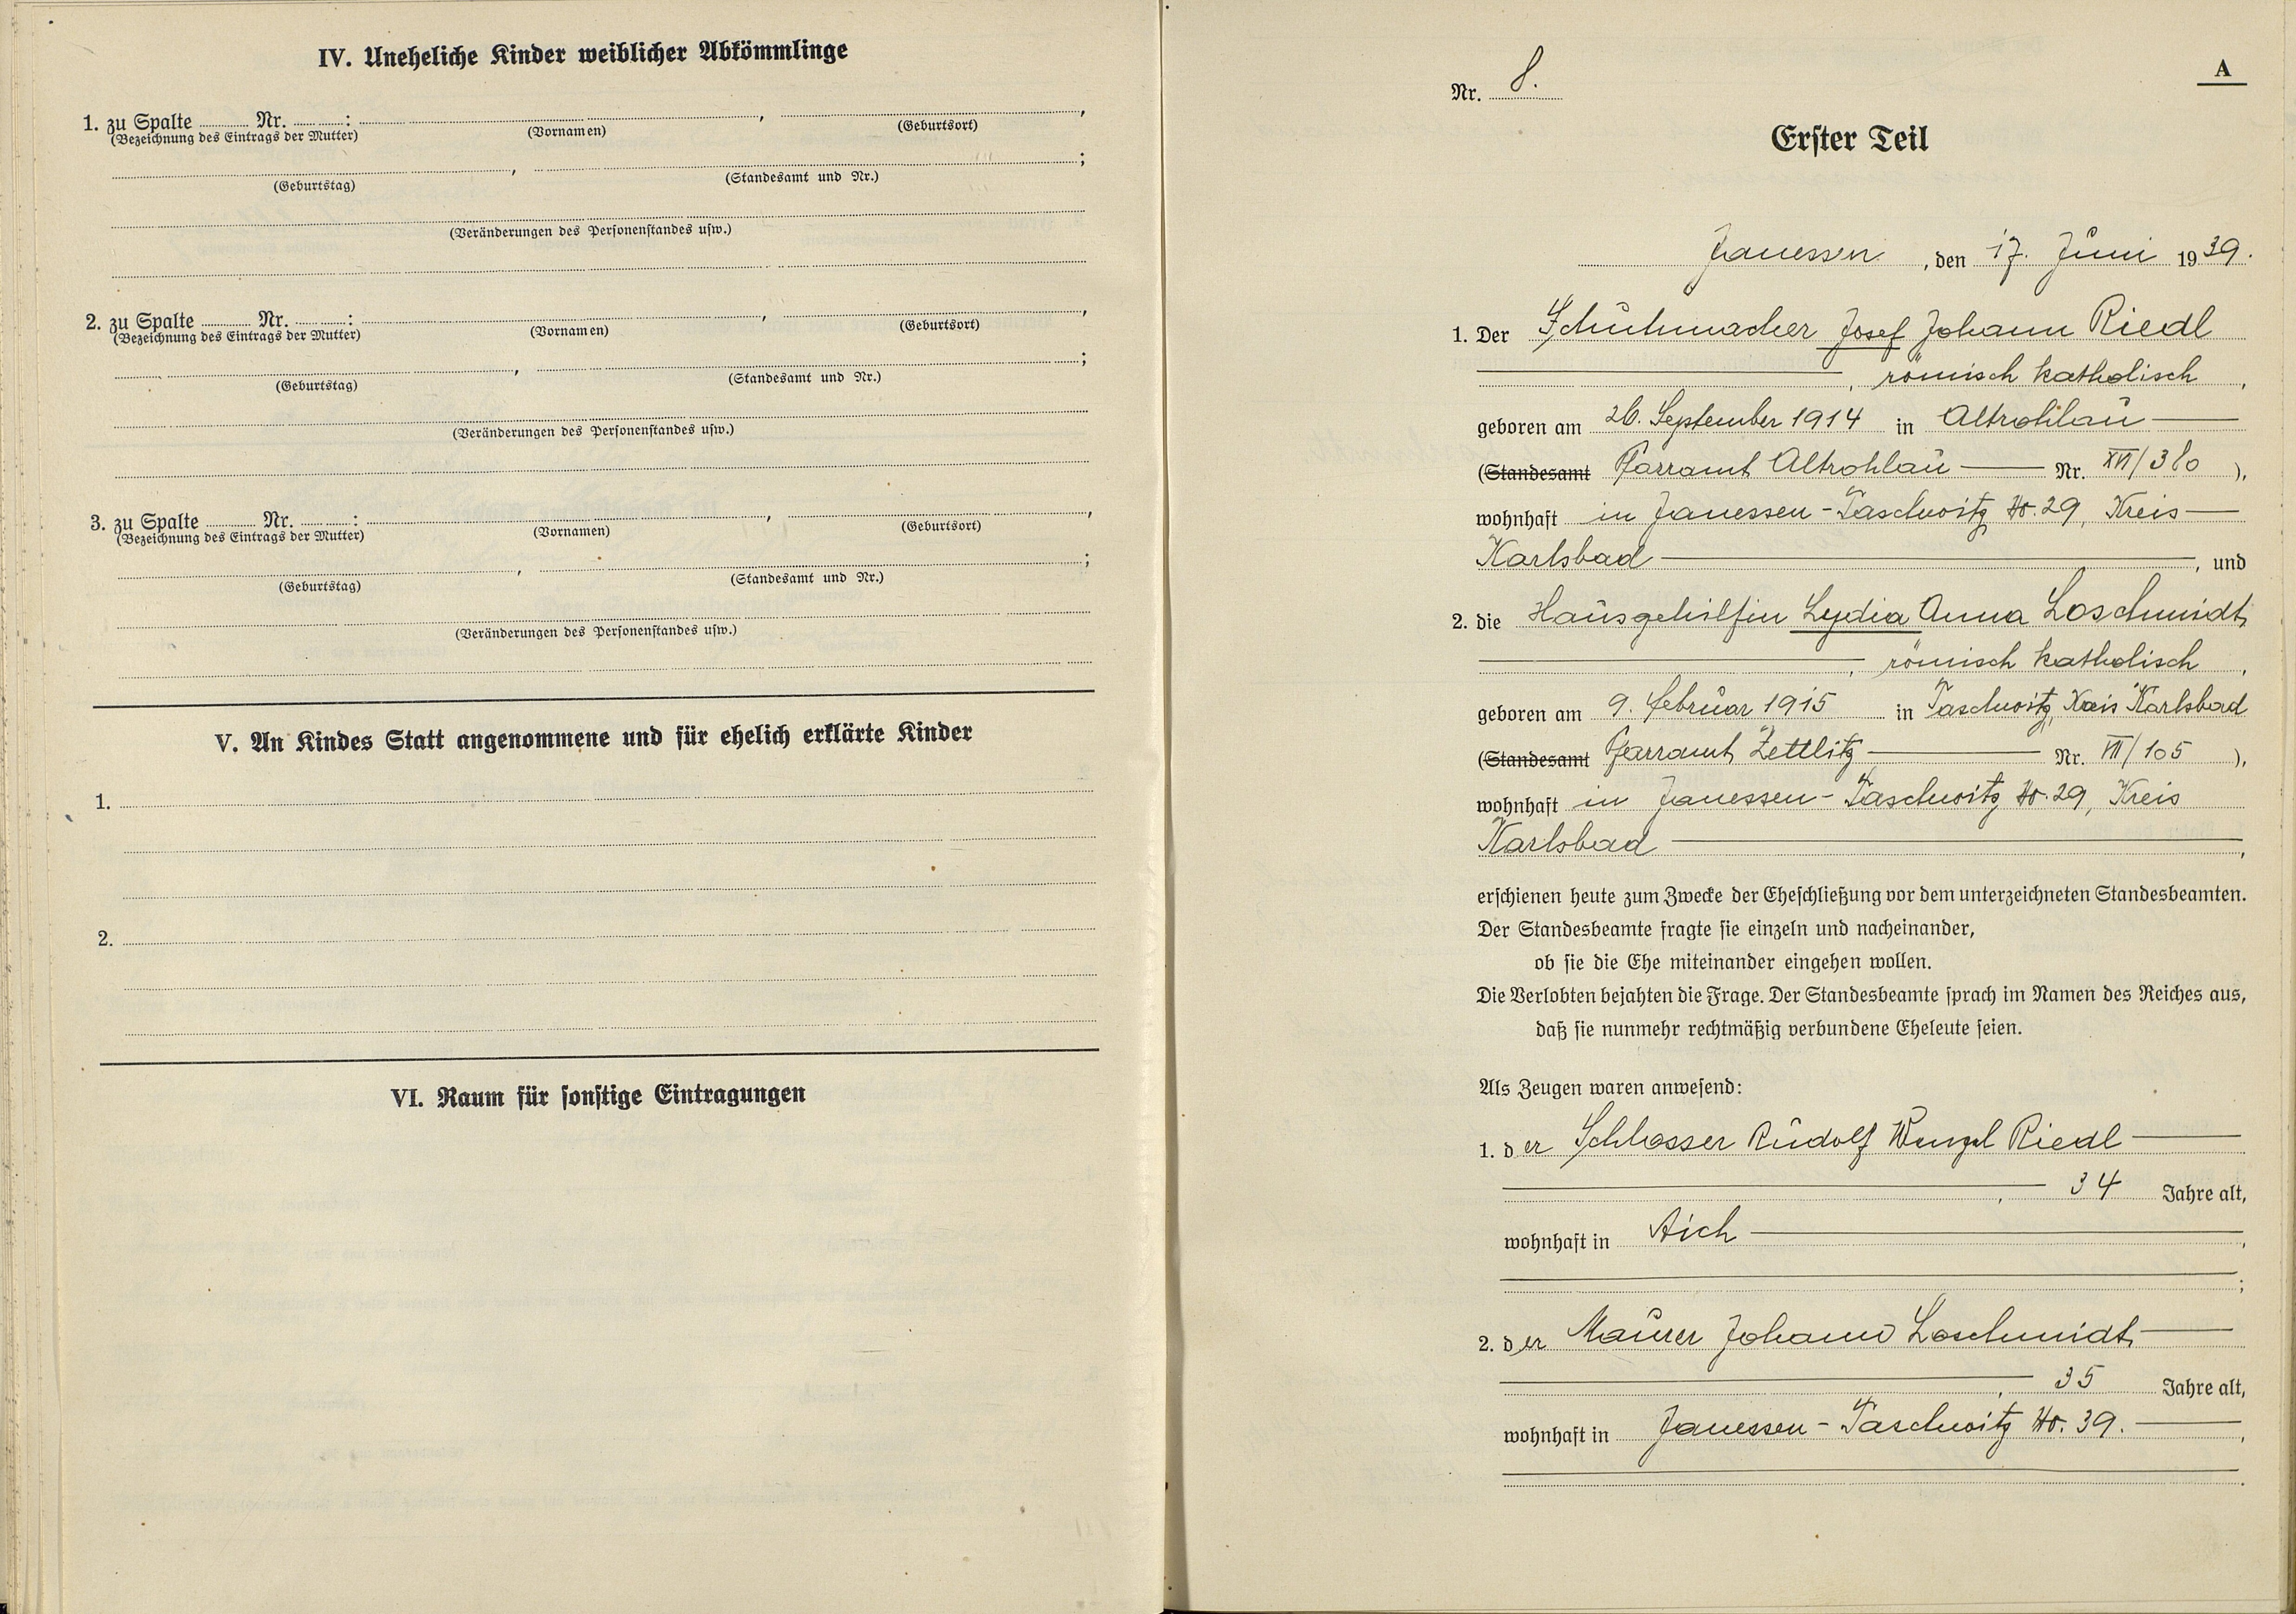 IV. Uneheliche Kinder weiblicher Abkömmlinge
1. zu Spalte ........ Nr. ........ : ........ , ........ ,
(Bezeichnung des Eintrags der Mutter) (Vornamen) (Geburtsort)
........ , ........ ;
(Geburtstag) (Standesamt und Nr.)
(Veränderungen des Personenstandes usw.)
2. zu Spalte ........ Nr. ........ : ........ , ........ ,
(Bezeichnung des Eintrags der Mutter) (Vornamen) (Geburtsort)
........ , ........ ;
(Geburtstag) (Standesamt und Nr.)
(Veränderungen des Personenstandes usw.)
3. zu Spalte ........ Nr. ........ : ........ , ........ ,
(Bezeichnung des Eintrags der Mutter) (Vornamen) (Geburtsort)
........ , ........ ;
(Geburtstag) (Standesamt und Nr.)
(Veränderungen des Personenstandes usw.)
V. An Kindes Statt angenommene und für ehelich erklärte Kinder
1.
2.
VI. Raum für sonstige Eintragungen
A
Nr. 8.
Erster Teil
Janessen, den 17. Juni 1939.
1. Der Schuhmacher Josef Johann Riedl
, römisch katholisch,
geboren am 26. September 1914 in Altrohlau
(Standesamt Pfarramt Altrohlau Nr. XII/380),
wohnhaft in Janessen-Taschwitz No. 29, Kreis
Karlsbad, und
2. die Hausgehilfin Lydia Anna Loschmidt,
, römisch katholisch,
geboren am 9. Februar 1915 in Taschwitz, Kreis Karlsbad
(Standesamt Pfarramt Zettlitz Nr. VII/105),
wohnhaft in Janessen-Taschwitz No. 29, Kreis
Karlsbad,
erschienen heute zum Zwecke der Eheschließung vor dem unterzeichneten Standesbeamten.
Der Standesbeamte fragte sie einzeln und nacheinander,
ob sie die Ehe miteinander eingehen wollen.
Die Verlobten bejahten die Frage. Der Standesbeamte sprach im Namen des Reiches aus,
daß sie nunmehr rechtmäßig verbundene Eheleute seien.
Als Zeugen waren anwesend:
1. der Schlosser Rudolf Wenzel Riedl
, 34 Jahre alt,
wohnhaft in Aich,
;
2. der Maurer Johann Loschmidt
, 35 Jahre alt,
wohnhaft in Janessen-Taschwitz No. 39.,
.